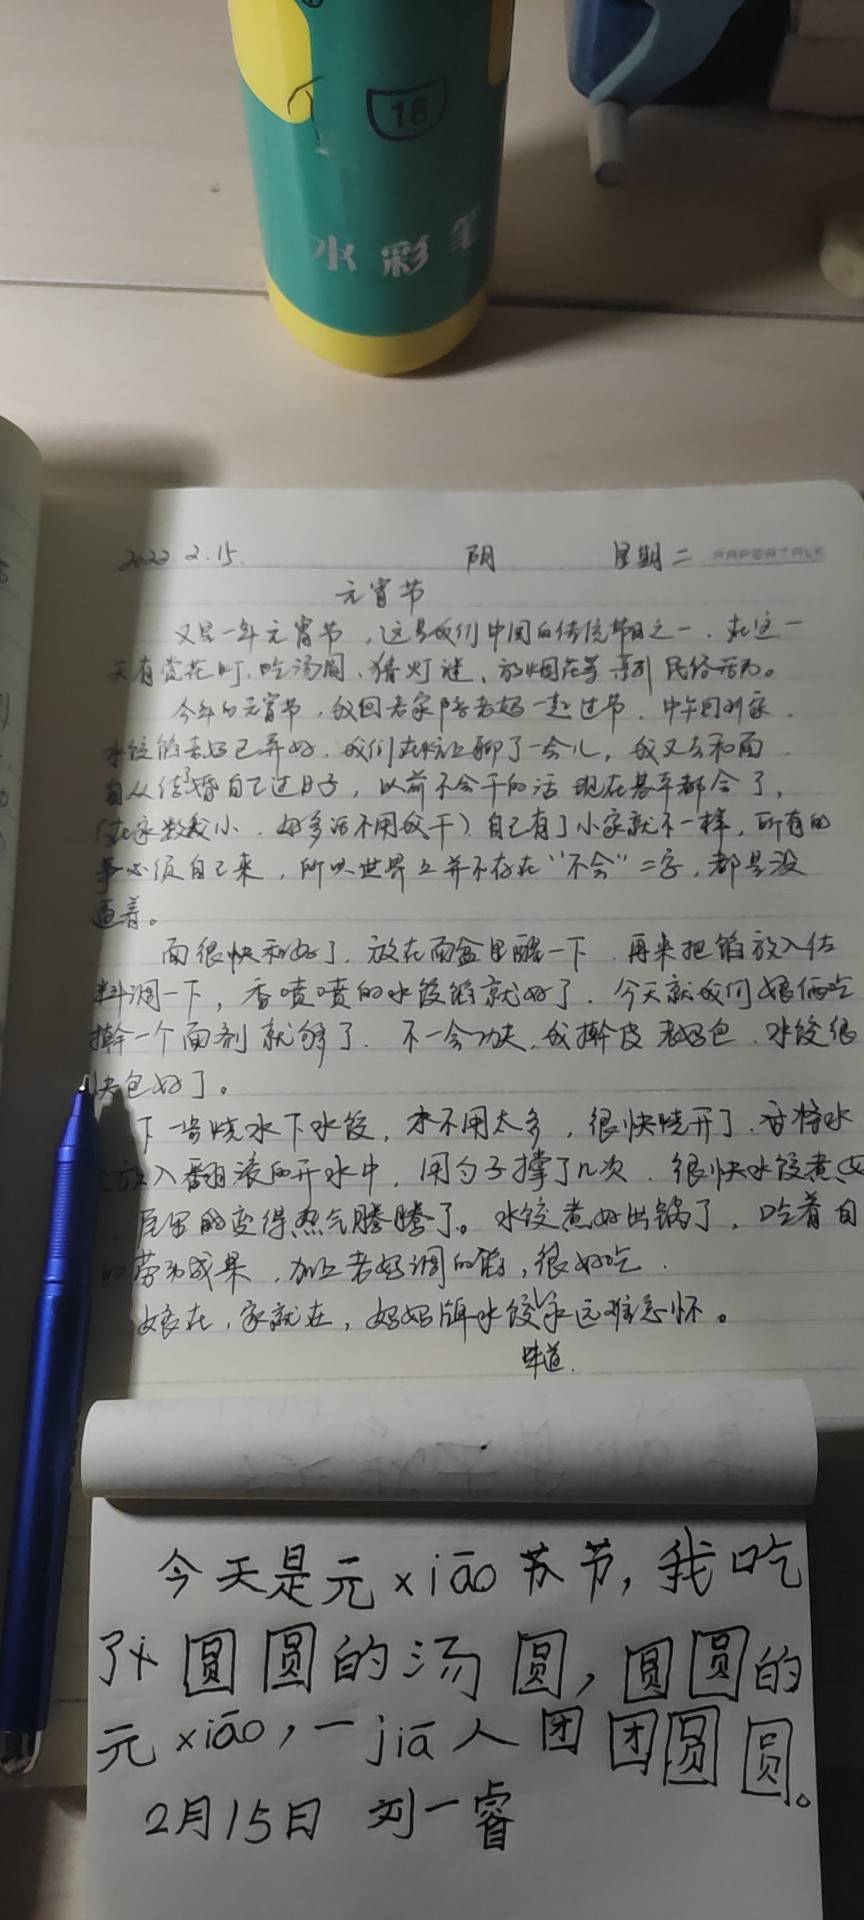 18
水彩笔
2022.2.15. 阴 星期二 PAPERTALK
元宵节
又是一年元宵节，这是我们中国的传统节日之一．在这一
天有赏花灯、吃汤圆、猜灯谜、放烟花等系列民俗活动。
今年的元宵节，我回老家陪老妈一起过节．中午回到家，
水饺馅老妈已弄好．我们在炕上聊了一会儿，我又去和面
自从结婚自己过日子，以前不会干的活现在基本都会了，
（在家数我小．好多活不用我干）自己有了小家就不一样，所有的
事必须自己来，所以世界上并不存在“不会”二字，都是没
逼着。
面很快和好了，放在面盆里醒一下．再来把馅放入佐
料调一下，香喷喷的水饺馅就好了．今天就我们娘俩吃
擀一个面剂就够了．不一会功夫，我擀皮老妈包．水饺很
快包好了。
下一步烧水下水饺，水不用太多，很快烧开了．
放入翻滚的开水中，用勺子撑了几次．很快水饺煮好
变得热气腾腾了。水饺煮好出锅了，吃着自
的劳动成果，加上老妈调的馅，很好吃．
娘在，家就在，妈妈牌水饺永远难忘怀。
味道．
今天是元xiāo节，我吃
了圆圆的汤圆，圆圆的
元xiāo，一jiā人团团圆圆。
2月15日 刘一睿